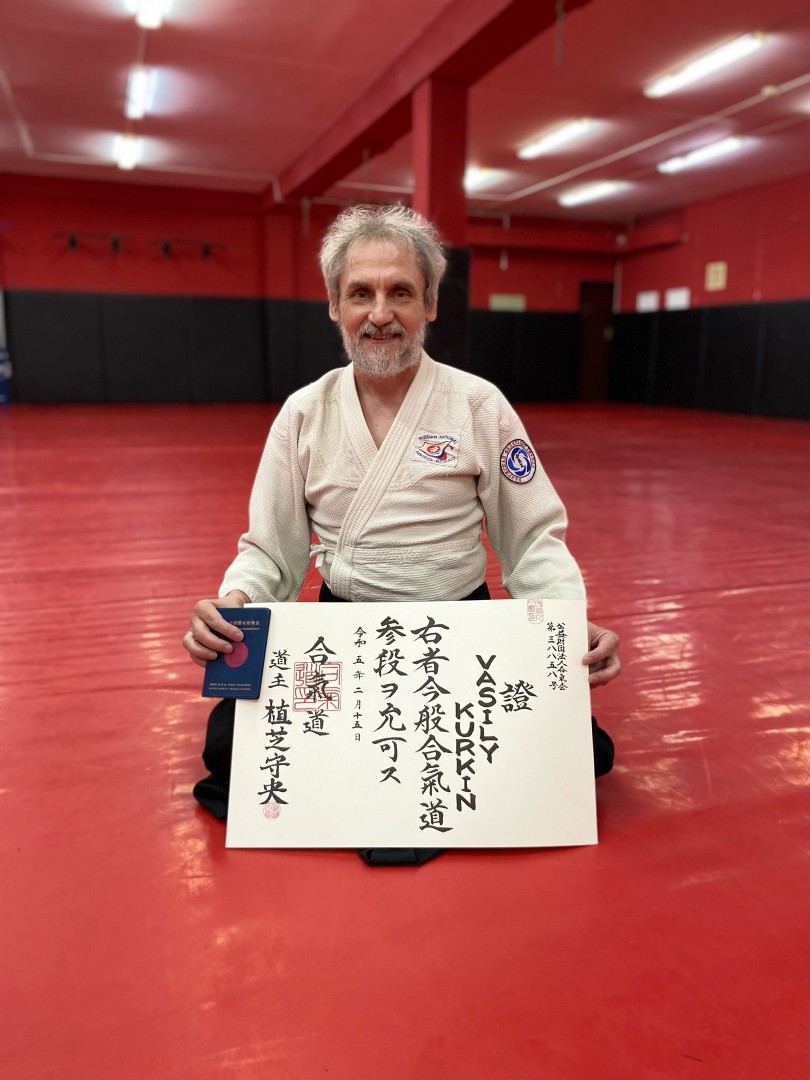 公益財団法人合氣会
第三八八五八号
證
VASILY
KURKIN
右者今般合氣道
参段ヲ允可ス
令和五年二月十五日
合氣道
道主 植芝守央